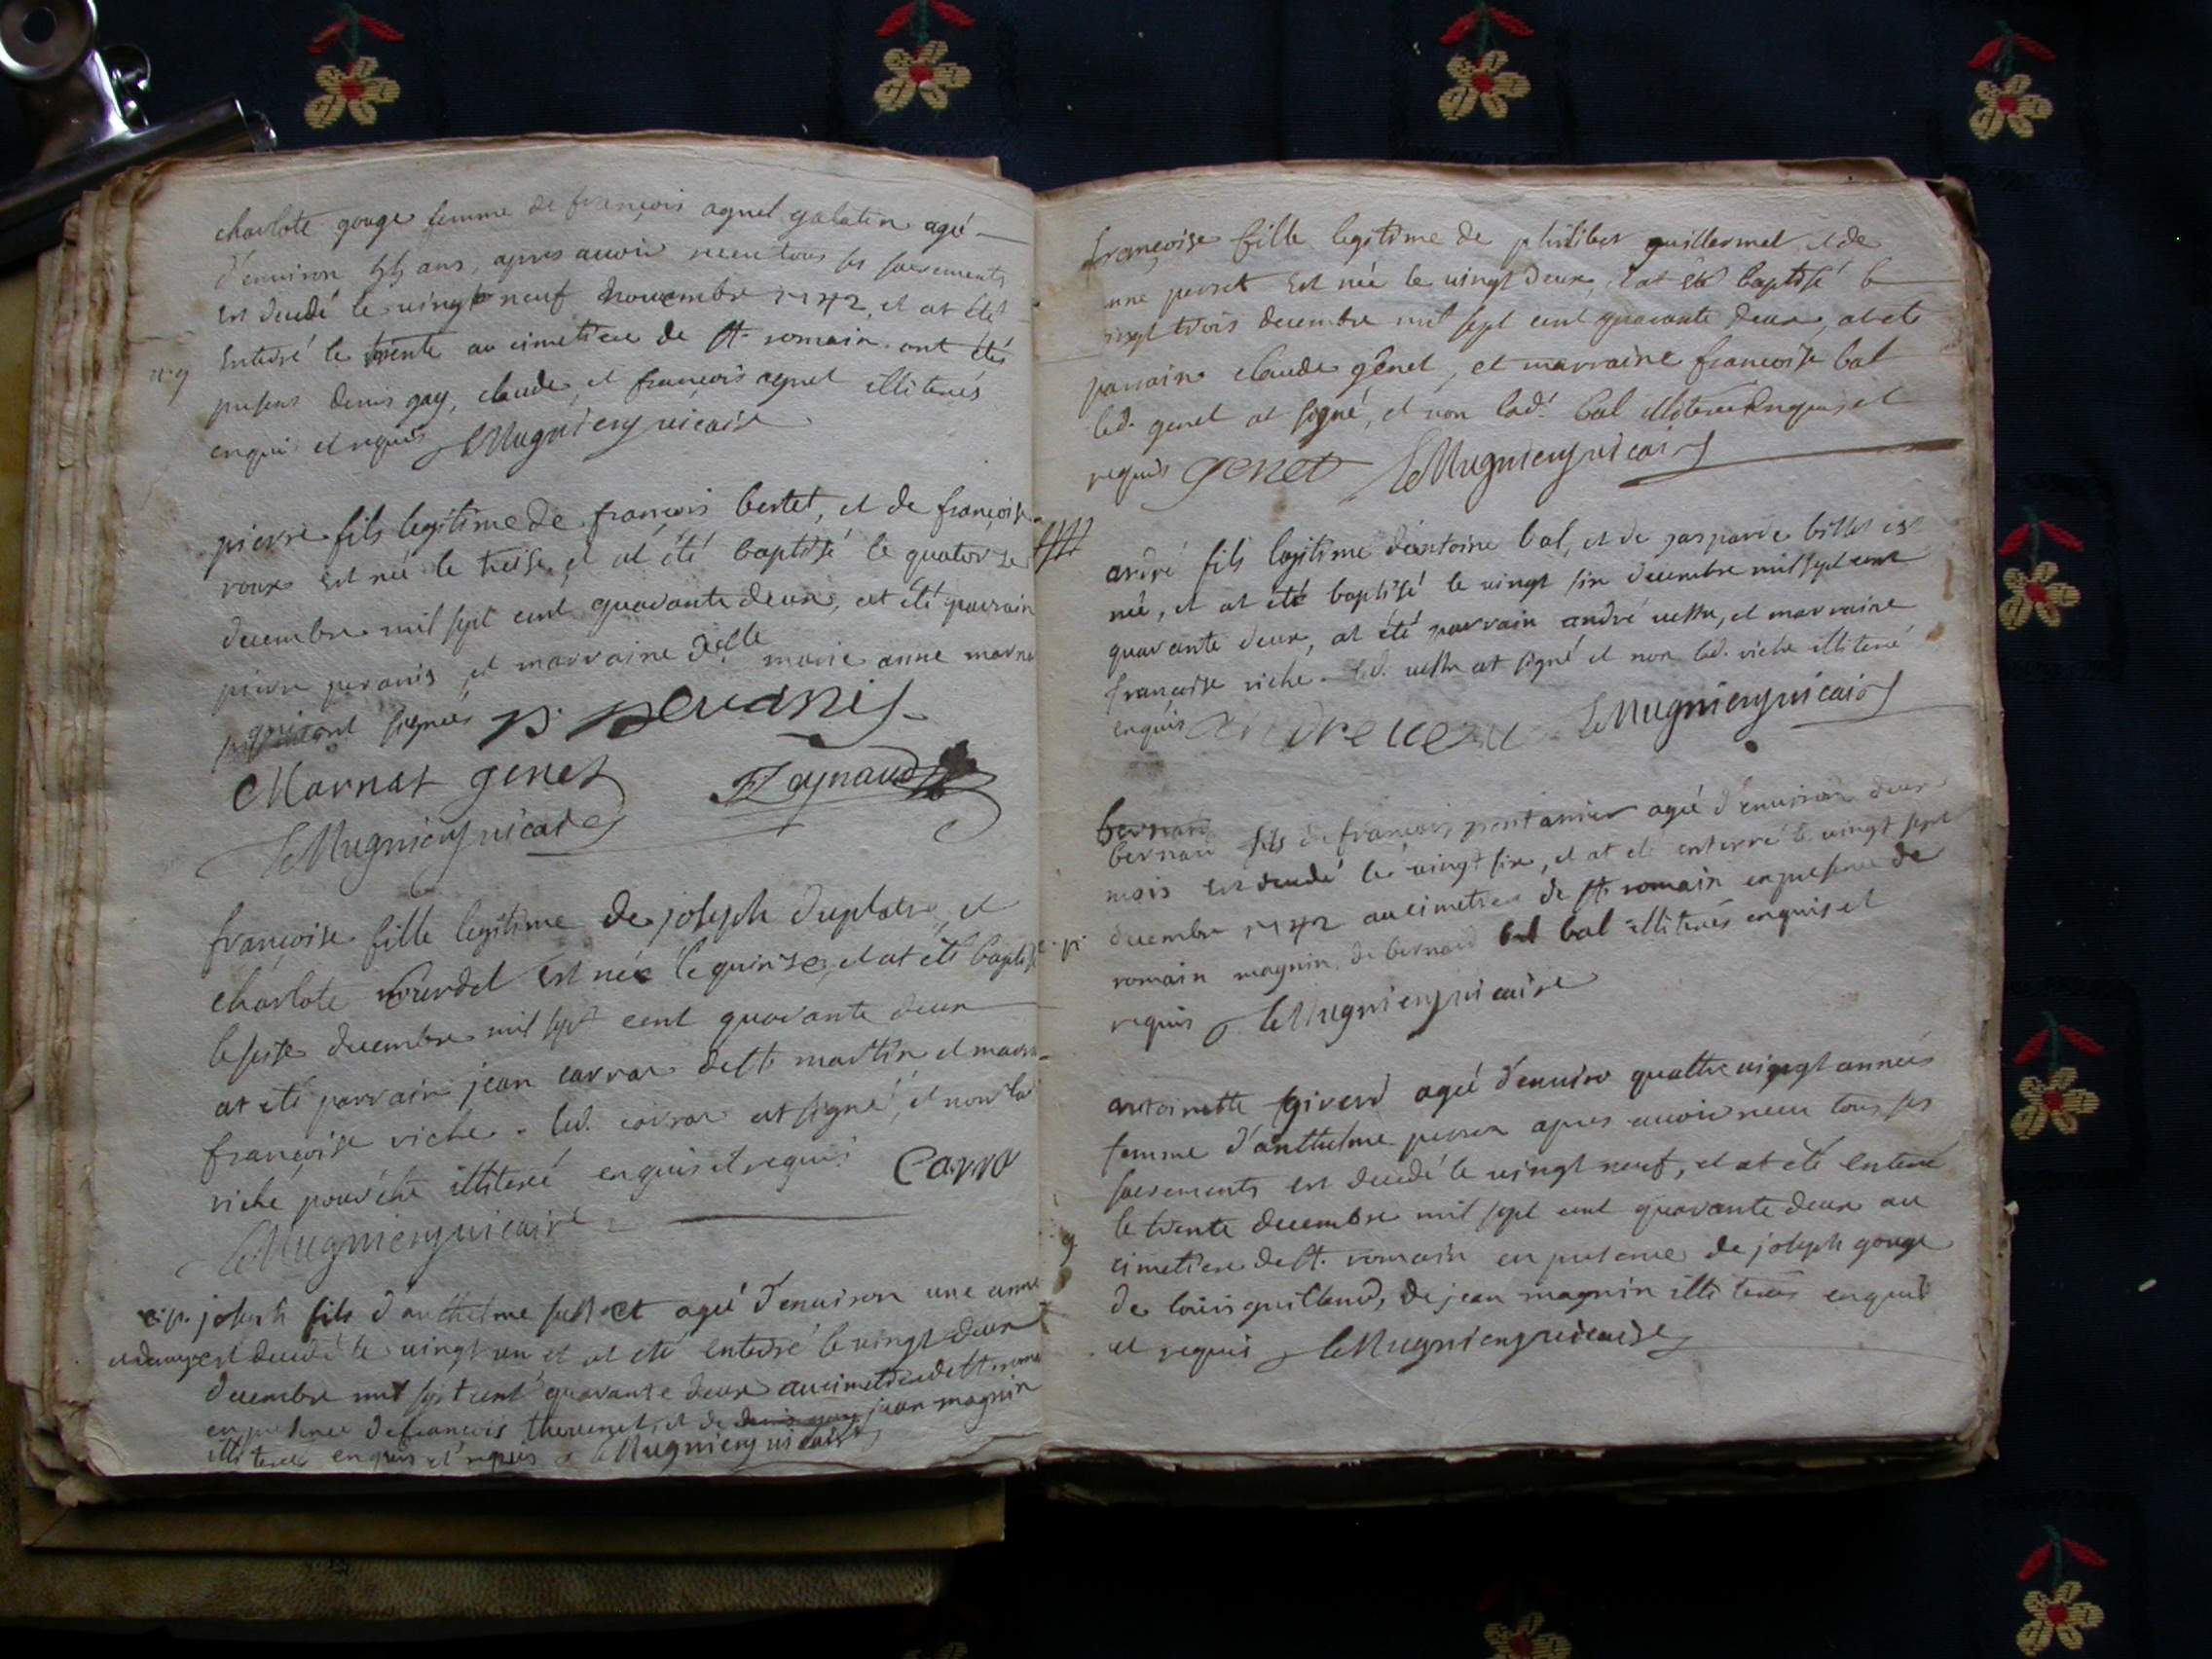 charlote gouge femme de françois agnel galatin agé
d'environ 55 ans, apres avoir receu tous ses sacrements
est decedé le vingt neuf novembre 1742, et at eté
enterré le trente au cimetiere de st. romain ont étés
presens denis gay, claude, et françois agnel illiterés
enquis et requis leMugnier vicaire
pierre fils legitime de françois bertet, et de françoise
roux est né le treise, et at été baptisé le quatorze
decembre mil sept cent quarante deux, at été parrain
pierre peranis, et marraine delle marie anne marna
qui ont signés p. peranis
Marnat genet Raynaud
leMugnier vicaire
françoise fille legitime de joseph duplatre, et
charlote bourdel est née le quinse, et at été baptisé
le seise decembre mil sept cent quarante deux
at été parrain jean carrar de st. martin et marr
françoise riche. led. carrar at signé, et non la
riche pour être illiteré enquis et requis Carra
leMugnier vicaire
joseph fils d'anthelme agé d'environ une anné
est decedé le vingt un et at eté enterré le vingt deux
decembre mil sept cent quarante deux au cimetiere de st. roma
en presence de francois thevenet, et de jean magnin
illiterés enquis et requis leMugnier vicaire
françoise fille legitime de philiber guillermet, et de
perret est née le vingt deux, et at été baptisé le
vingt trois decembre mil sept cent quarante deux, at eté
parrain claude genet, et marraine francoise bal
led. genet at signé, et non lad. bal illiterée enquis et
requis genet leMugnier vicaire
andré fils legitime d'antoine bal, et de gasparde billet est
né, et at été baptisé le vingt six decembre mil sept cent
quarante deux, at été parrain andré, et marraine
francoise riche. led. at signé et non lad. riche illiteré
enquis andre leMugnier vicaire
bernard
bernard fils de françois pontanier agé d'environ deux
mois est decedé le vingt six, et at eté enterré le vingt sept
decembre 1742 au cimetiere de st. romain en presence de
romain magnin, de bernard bal bal illiterés enquis et
requis leMugnier vicaire
antoinette girerd agé d'environ quattre vingt années
femme d'anthelme perret apres avoir receu tous ses
sacrements est decedé le vingt neuf, et at eté enterré
le trente decembre mil sept cent quarante deux au
cimetiere de st. romain en presence de joseph gouge
de louis guilland, de jean magnin illiterés enquis
et requis leMugnier vicaire